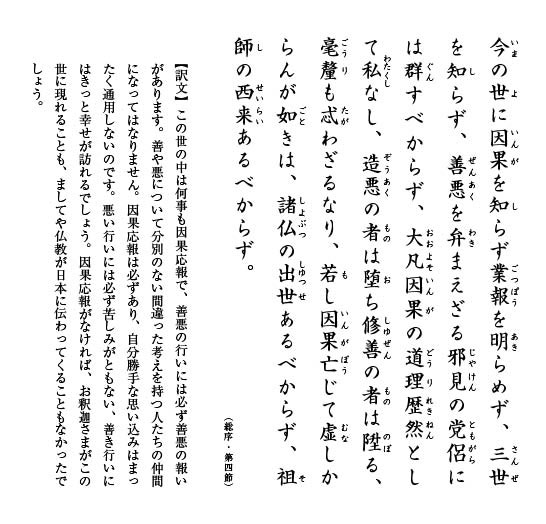 今の世に因果を知らず業報を明らめず、三世
を知らず、善悪を弁まえざる邪見の党侶に
は群すべからず、大凡因果の道理歴然とし
て私なし、造悪の者は堕ち修善の者は陞る、
毫釐も忒わざるなり、若し因果亡じて虚しか
らんが如きは、諸仏の出世あるべからず、祖
師の西来あるべからず。
（総序・第四節）
【訳文】この世の中は何事も因果応報で、善悪の行いには必ず善悪の報い
があります。善や悪について分別のない間違った考えを持つ人たちの仲間
になってはなりません。因果応報は必ずあり、自分勝手な思い込みはまっ
たく通用しないのです。悪い行いには必ず苦しみがともない、善き行いに
はきっと幸せが訪れるでしょう。因果応報がなければ、お釈迦さまがこの
世に現れることも、ましてや仏教が日本に伝わってくることもなかったで
しょう。